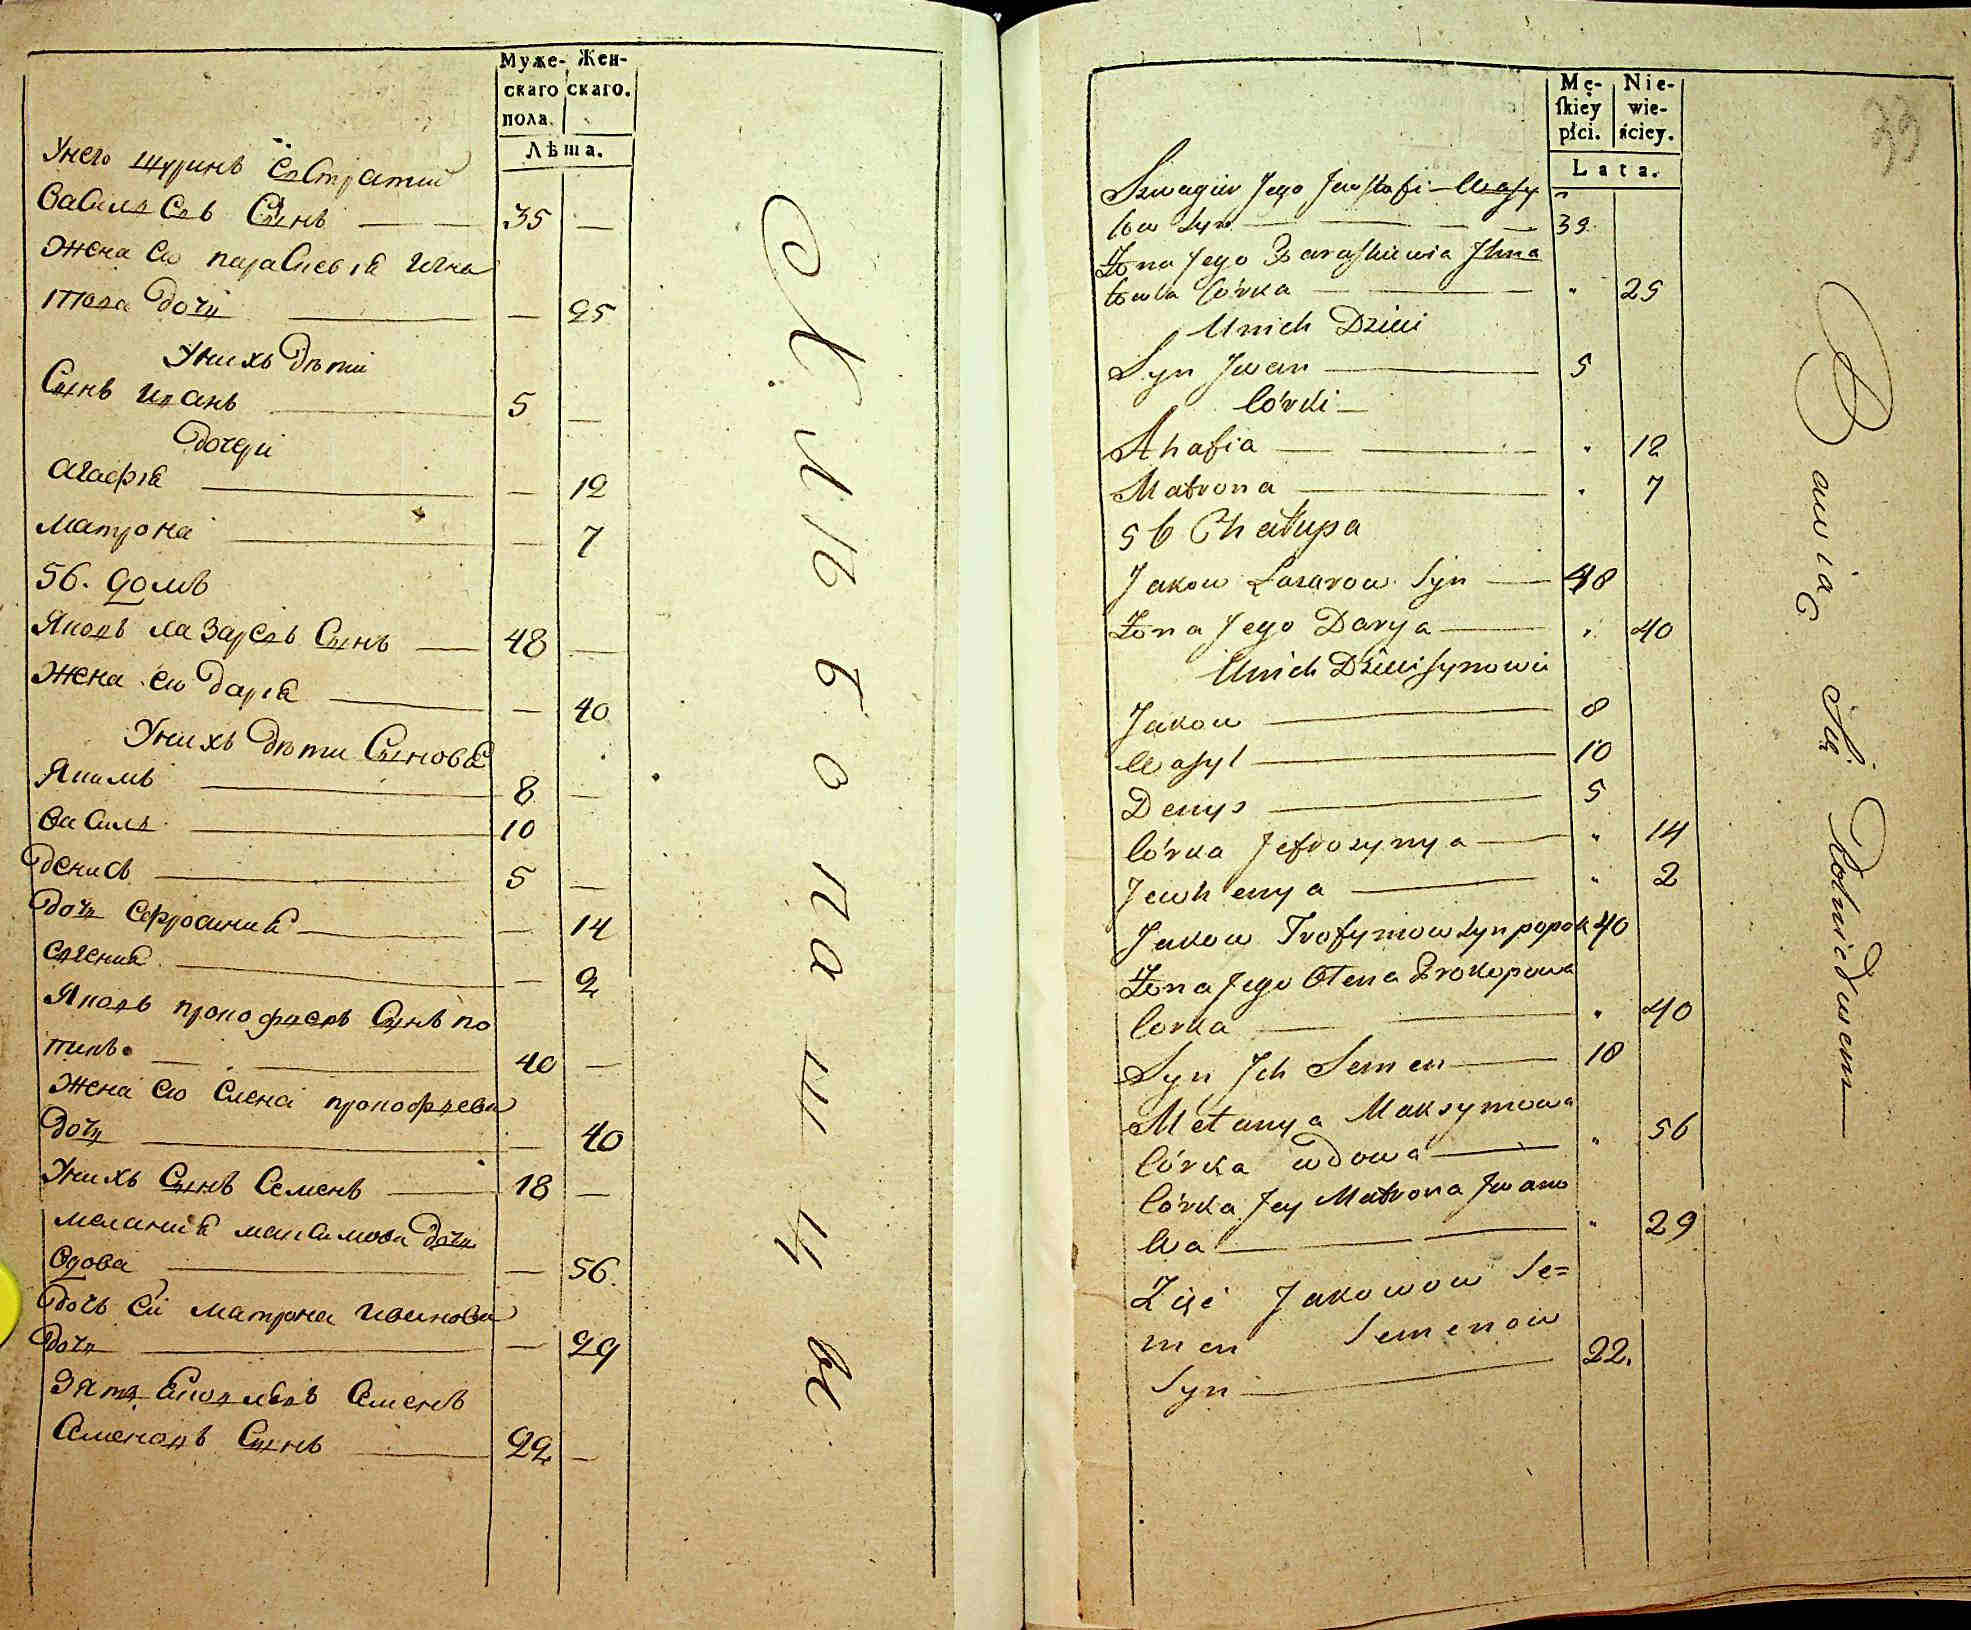 Муже- Жен-
скаго скаго.
пола.
Лѣта.
Унего шуринъ Евстратий
Василевъ Сынъ — 35 —
Жена его параскевія Игна
това дочь — 25
Унихъ дѣти
Сынъ Иванъ 5 —
дочери
Агафія — 12
Матрона — 7
56. домъ
Яковъ Лазаревъ Сынъ — 48 —
Жена его дарія — 40
Унихъ дѣти Сыновя
Якимъ 8 —
Василь 10
денисъ 5 —
дочь Ефросинія — 14
Евгенія — 2
Яковъ прокофьевъ Сынъ по
пикъ 40 —
Жена его Елена прокофьева
дочь — 40
Унихъ Сынъ Семенъ — 18 —
Меланія максимова дочь
вдова — 56.
дочь ей матрона иванова
дочь — 29
Зять Яковлевъ Семенъ
Семеновъ Сынъ 22 —
Хлѣбопашцы
Mę- Nie-
skiey wie-
płci. ściey.
Lata.
39
Szwagier Jego Jewstafi Wasy
low Syn — 39
Żona Jego Paraskiewia Ihna
towa Córka — " 25
Unich Dzieci
Syn Jwan — 5
Córki —
Ahafia — " 12
Matrona — " 7
56 Chałupa
Jakow Lazarow Syn — 48
Żona Jego Darya — " 40
Unich Dzieci Synowie
Jakow — 8
Wasyl — 10
Denys — 5
Córka Jefrosynya — " 14
Jewhenya — " 2
Jakow Trofymow Syn popok 40
Żona Jego Ołena Prokopowa
Corka — " 40
Syn Jch Semen — 18
Mełanya Maksymowa
Córka wdowa — " 56
Córka Jey Matrona Jwano
wa — " 29
Zięć Jakowow Se=
men Semenow
Syn — 22.
Bawią Się Rolnictwem